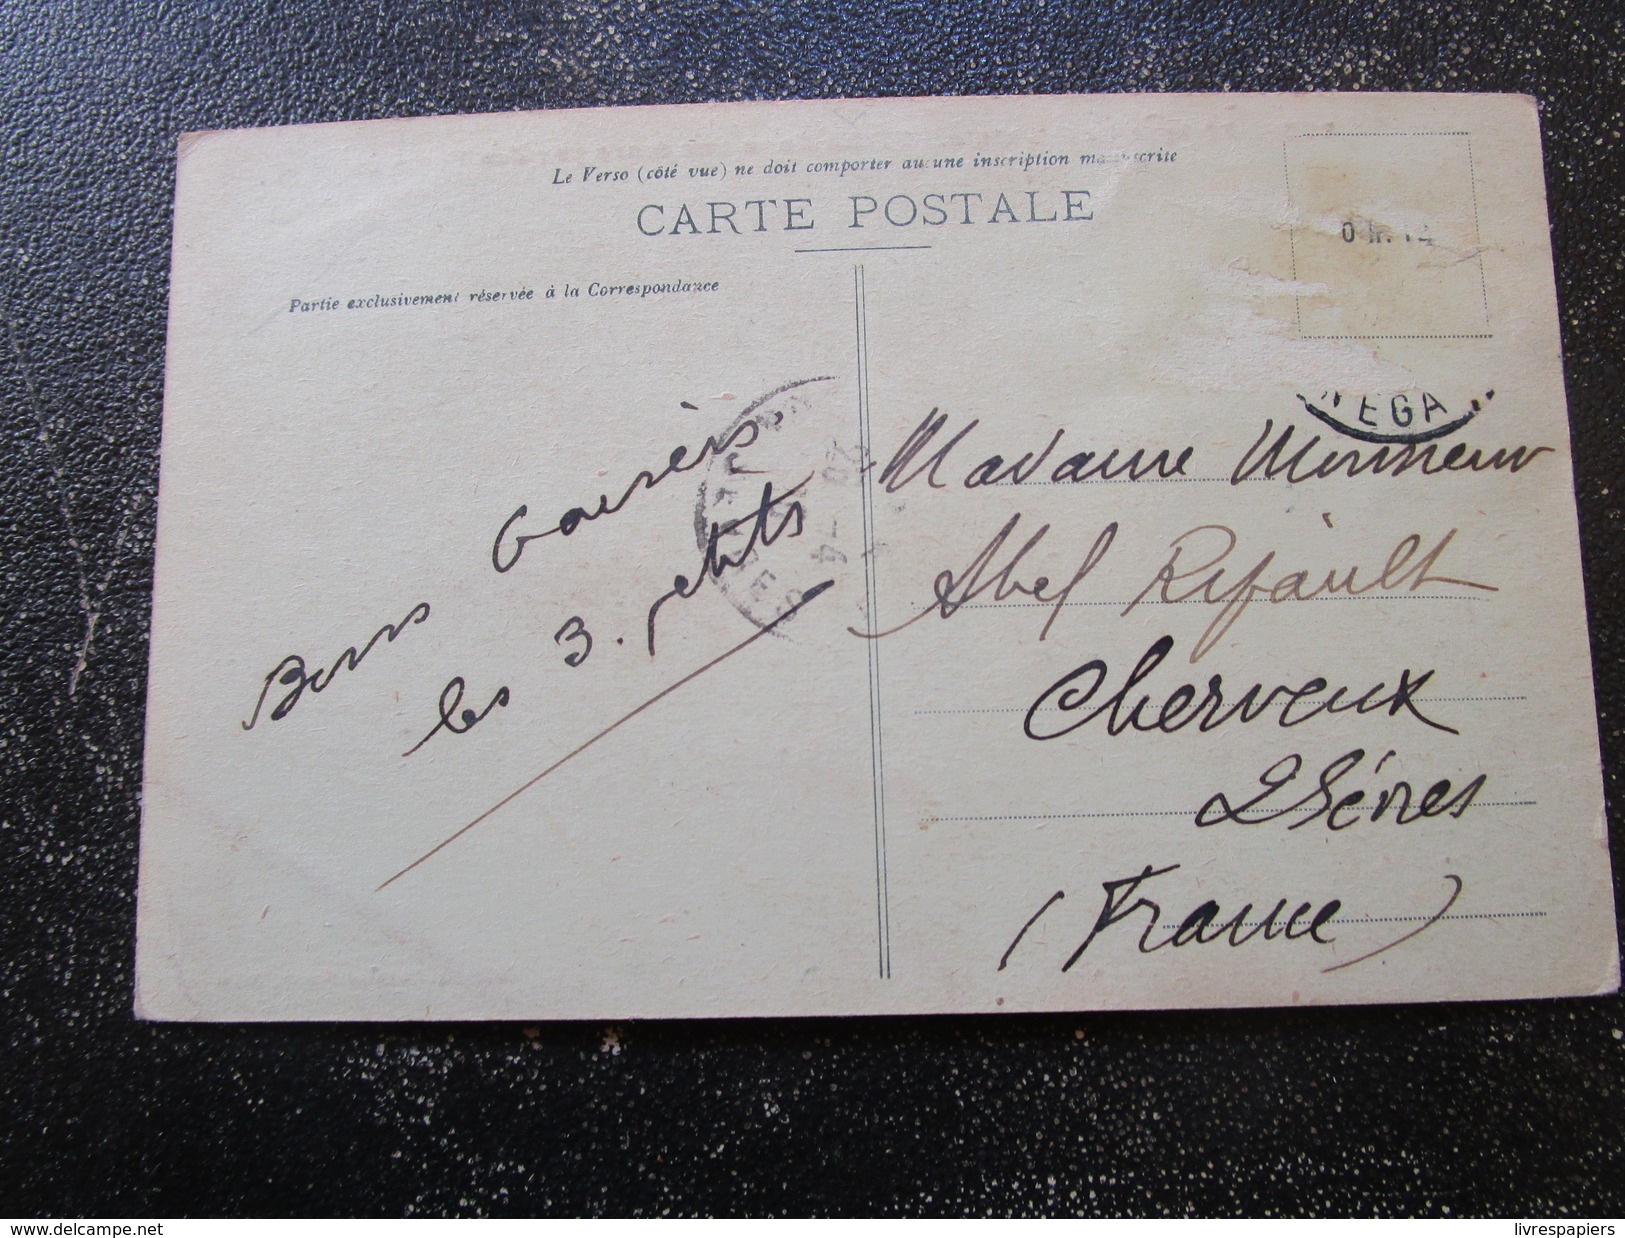 Le Verso (côté vue) ne doit comporter aucune inscription manuscrite
CARTE POSTALE
Partie exclusivement réservée à la Correspondance
Bons
les 3. petits
Madame Monsieur
Abel Rifault
Cherveux
2 Sèvres
(France)
NEGA
www.delcampe.net
livrespapiers